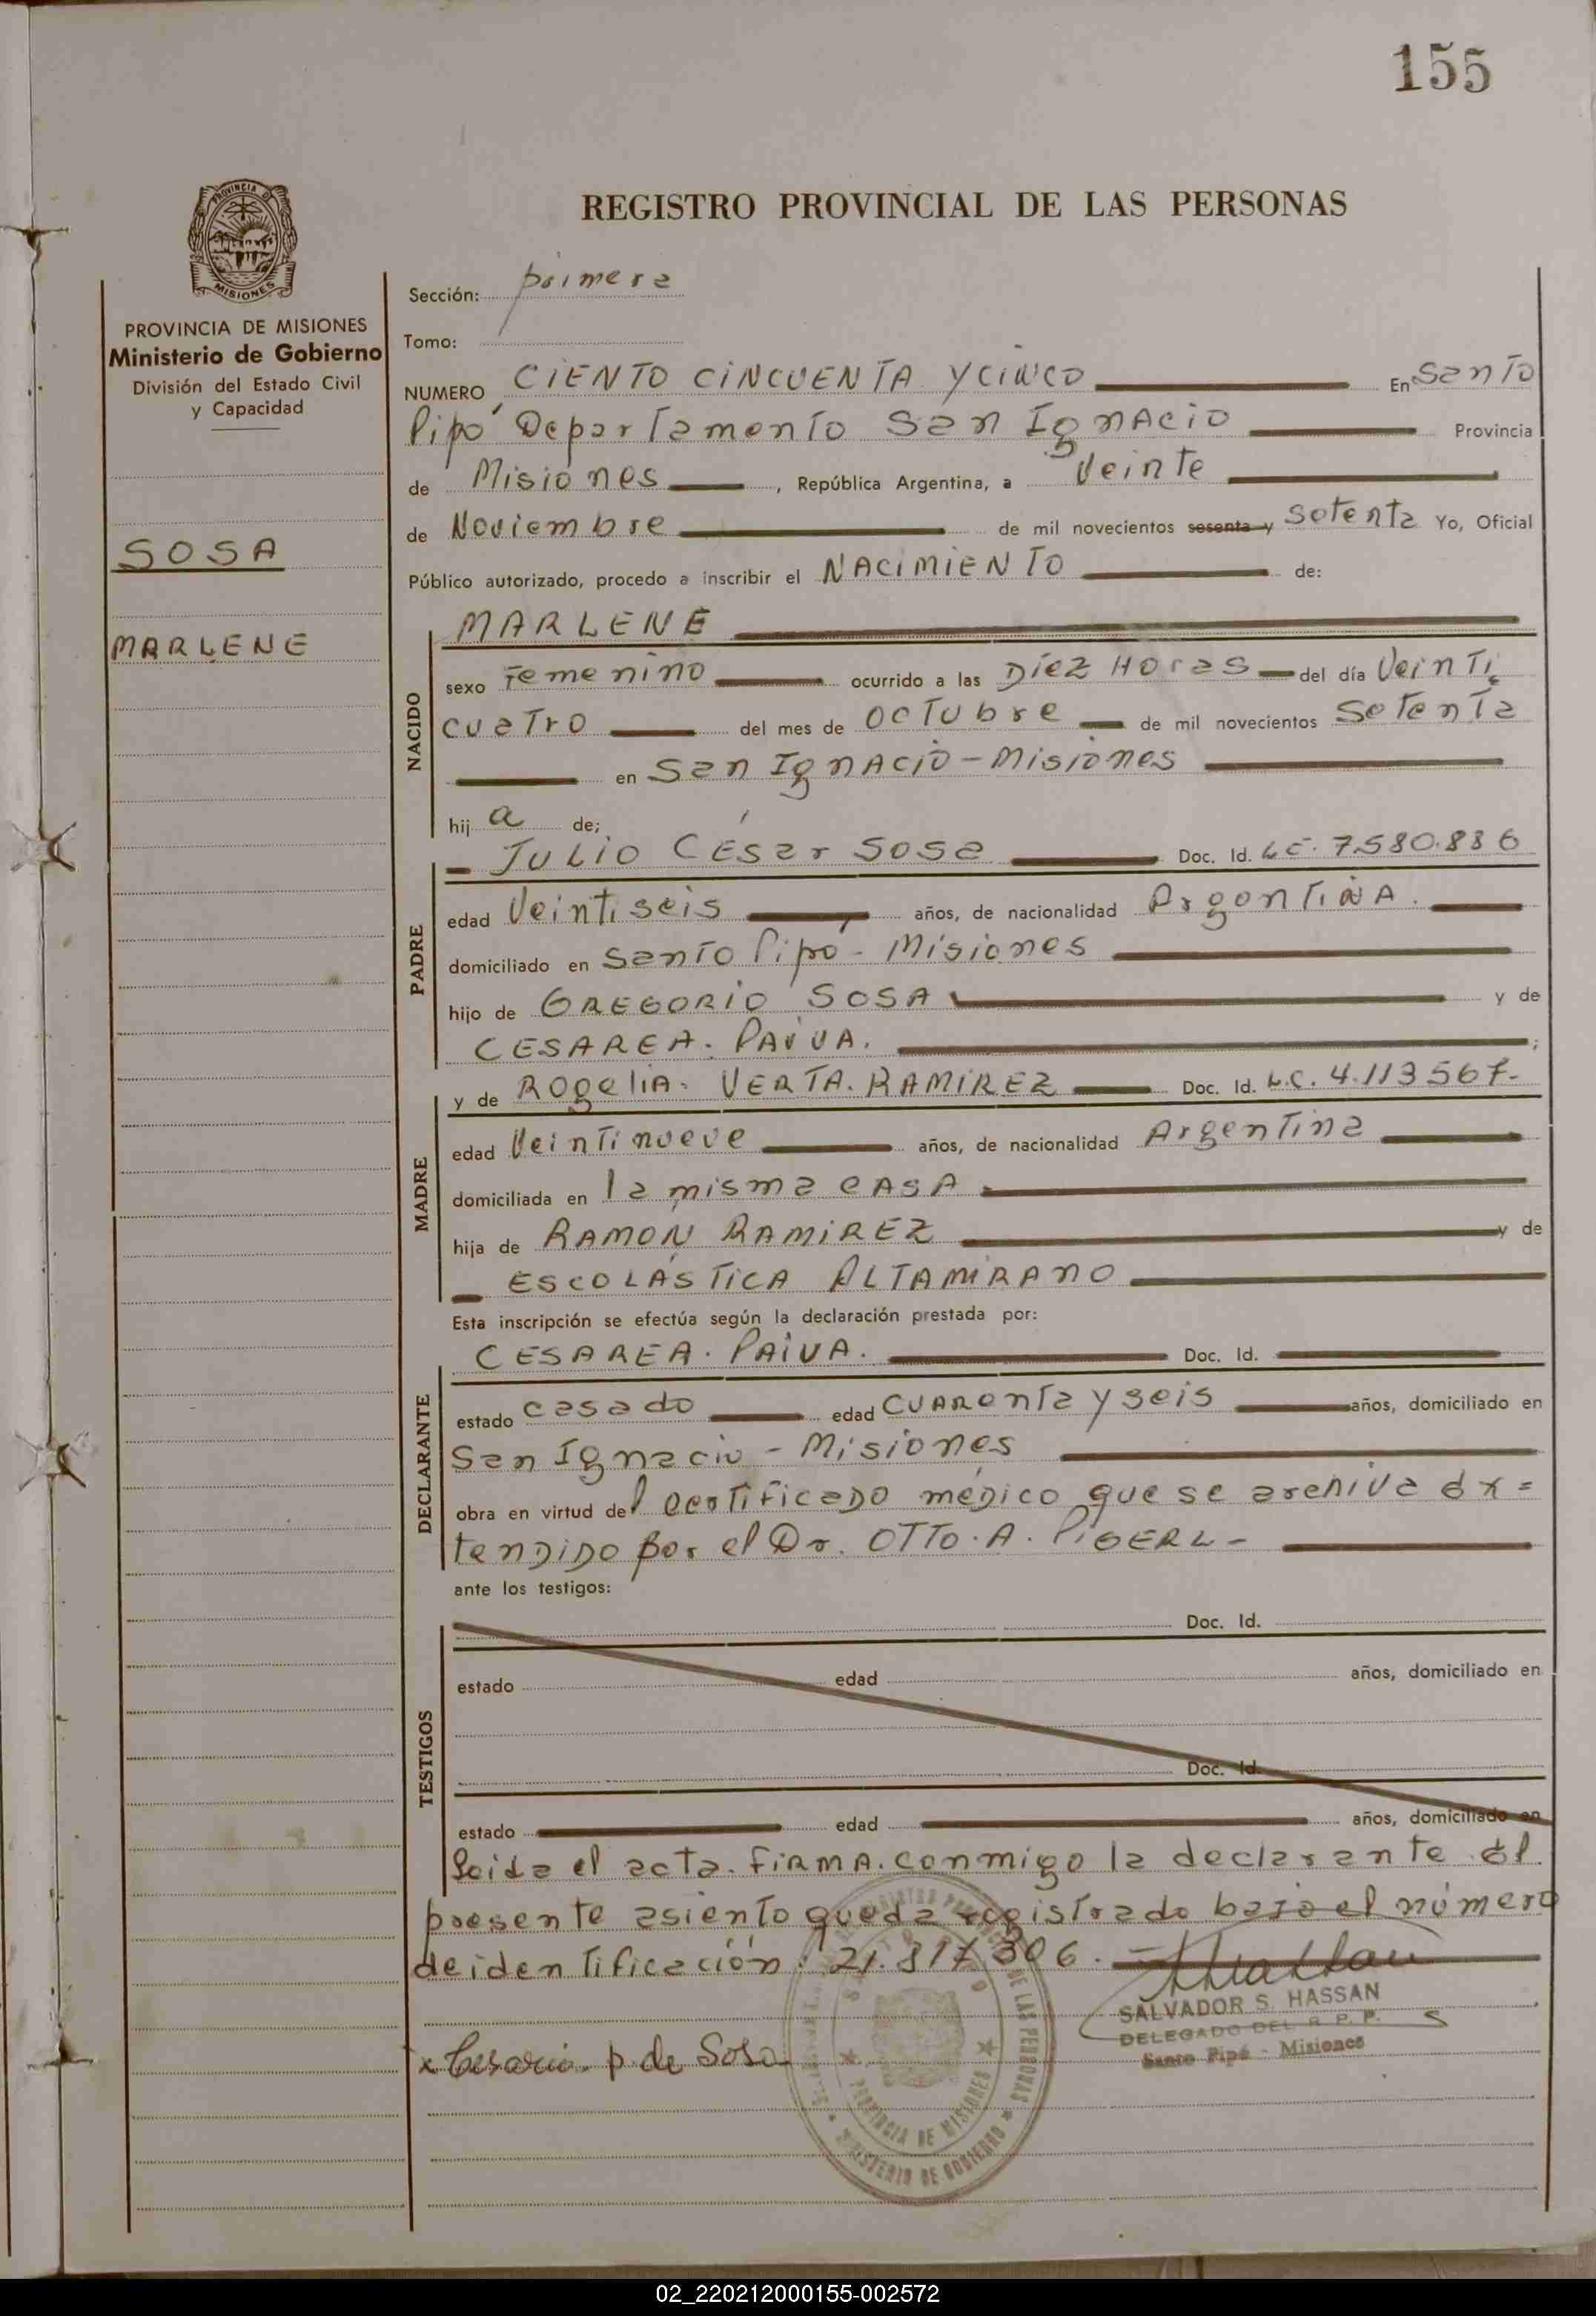 155
REGISTRO PROVINCIAL DE LAS PERSONAS
PROVINCIA DE MISIONES
PROVINCIA DE MISIONES
Ministerio de Gobierno
División del Estado Civil
y Capacidad
SOSA
MARLENE
Sección: primera
Tomo:
NUMERO CIENTO CINCUENTA Y CINCO En Santo
Pipó Departamento San Ignacio Provincia
de Misiones, República Argentina, a Veinte
de Noviembre de mil novecientos sesenta y Setenta Yo, Oficial
Público autorizado, procedo a inscribir el NACIMIENTO de:
MARLENE
NACIDO
sexo Femenino ocurrido a las Diez Horas del día Veinti
cuatro del mes de Octubre de mil novecientos Setenta
en San Ignacio - Misiones
hij a de;
JULIO César Sosa Doc. Id. L.E. 7.580.836
PADRE
edad Veintiseis años, de nacionalidad Argentina.
domiciliado en Santo Pipó - Misiones
hijo de GREGORIO SOSA y de
CESAREA. PAIVA. ;
y de Rogelia. VERTA. RAMIREZ Doc. Id. L.C. 4.113567-
MADRE
edad Veintinueve años, de nacionalidad Argentina
domiciliada en la misma casa
hija de RAMÓN RAMIREZ y de
ESCOLÁSTICA ALTAMIRANO
Esta inscripción se efectúa según la declaración prestada por:
CESAREA. PAIVA. Doc. Id.
DECLARANTE
estado casado edad cuarenta y seis años, domiciliado en
San Ignacio - Misiones
obra en virtud del certificado médico que se archiva ex=
tendido por el Dr. OTTO. A. PIGERL -
ante los testigos:
TESTIGOS
Doc. Id.
estado edad años, domiciliado en
Doc. Id.
estado edad años, domiciliado en
Leida el acta. FIRMA. conmigo la declarante él
presente asiento queda registrado bajo el número
de identificación: 21.317306.
SALVADOR S. HASSAN
DELEGADO DEL R. P. P.
Santo Pipó - Misiones
x Cesaria. p. de Sosa
DE LAS PERSONAS
PROVINCIA DE MISIONES
MINISTERIO DE GOBIERNO
02_220212000155-002572